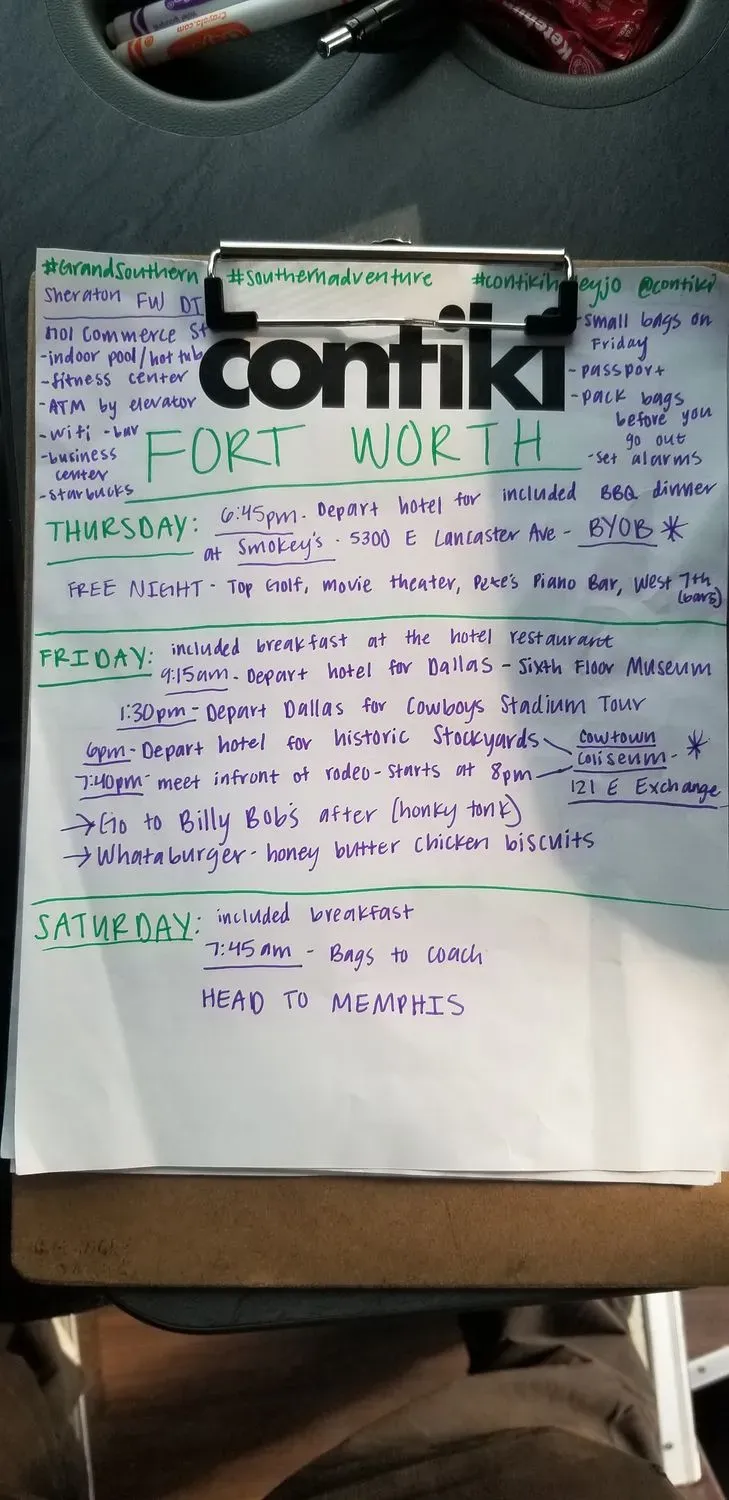 #GrandSouthern #Southernadventure #contikih eyjo @contiki
Sheraton FW DT
1701 Commerce St
-indoor pool/hot tub
-fitness center
-ATM by elevator
-wifi -bar
-business
center
-starbucks
contiki
-small bags on
Friday
-passport
-pack bags
before you
go out
-set alarms
FORT WORTH
THURSDAY: 6:45pm - Depart hotel for included BBQ dinner
at Smokey's · 5300 E Lancaster Ave - BYOB *
FREE NIGHT - Top Golf, movie theater, Pete's Piano Bar, West 7th
(bars)
FRIDAY: included breakfast at the hotel restaurant
9:15am - Depart hotel for Dallas - Sixth Floor Museum
1:30pm - Depart Dallas for Cowboys Stadium Tour
6pm - Depart hotel for historic Stockyards
7:40pm - meet infront of rodeo - starts at 8pm
Cowtown
Coliseum - *
121 E Exchange
→ Go to Billy Bob's after (honky tonk)
→ Whataburger - honey butter chicken biscuits
SATURDAY: included breakfast
7:45am - Bags to coach
HEAD TO MEMPHIS
Crayola.com
Ketchup